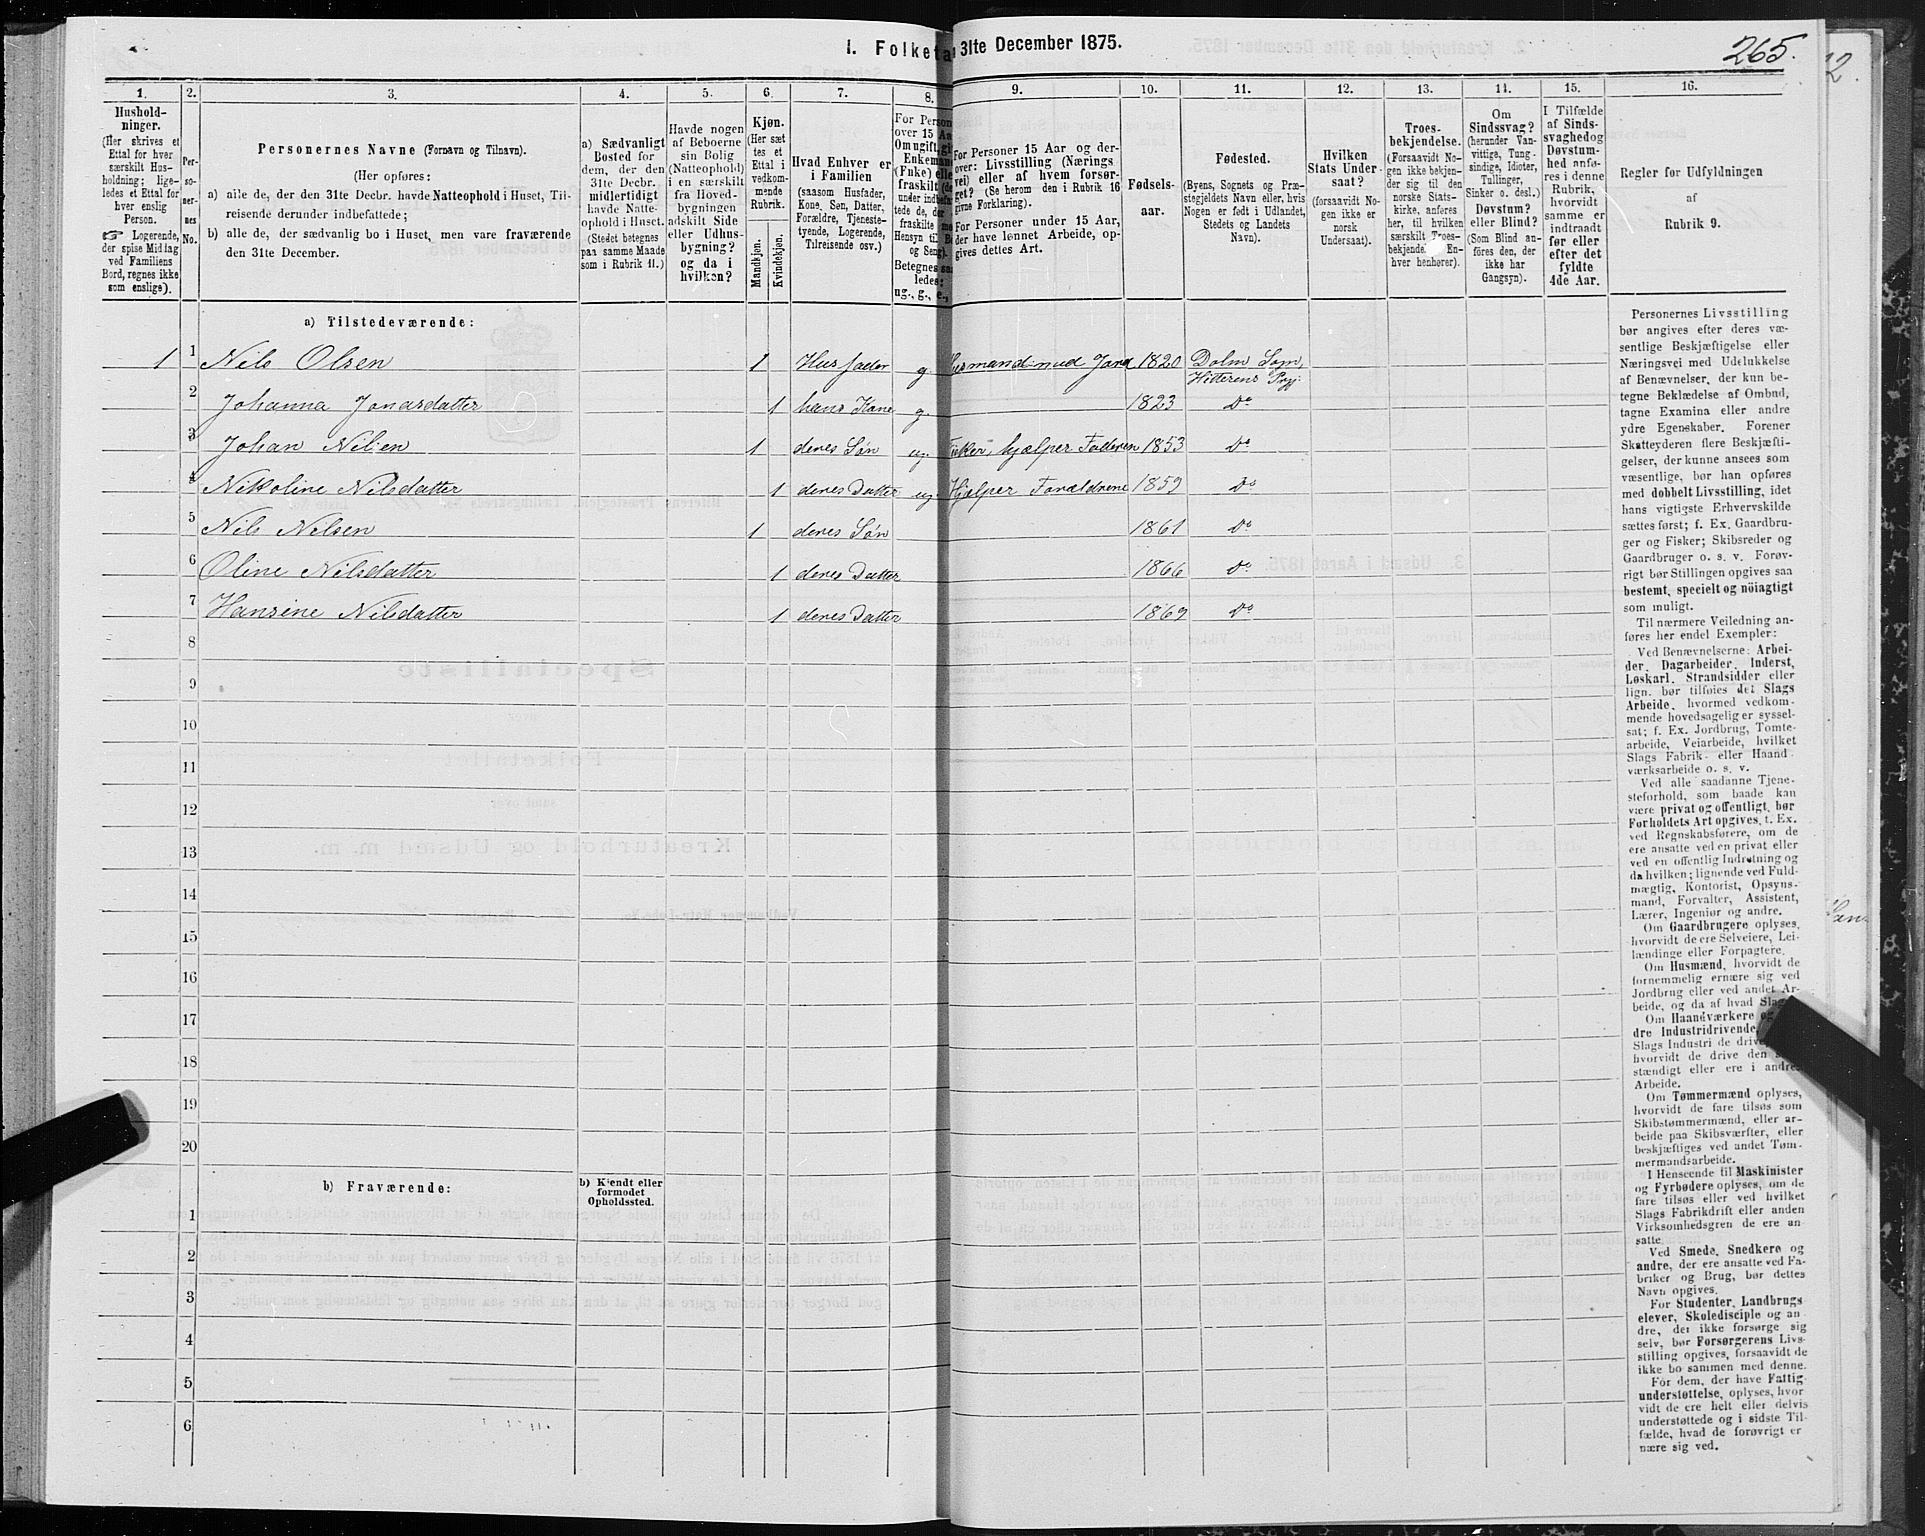 I. Folketa
31te December 1875.
265.
12.
1.
2.
3.
4.
5.
6.
7.
8.
9.
10.
11.
12.
13.
14.
15.
16.
Hushold-
ninger.
(Her skrives et
Ettal for hver
særskilt Hus-
holdning; lige-
ledes et Ettal for
hver enslig
Person.
☞ Logerende,
der spise Middag
ved Familiens
Bord, regnes ikke
som enslige).
Per-
so-
ner-
nes
No.
Personernes Navne (Fornavn og Tilnavn).
(Her opføres:
a) alle de, der den 31te Decbr. havde Natteophold i Huset, Til-
reisende derunder indbefattede;
b) alle de, der sædvanlig bo i Huset, men vare fraværende
den 31te December.
a) Sædvanligt
Bosted for
dem, der den
31te Decbr.
midlertidigt
havde Natte-
ophold i Huset.
(Stedet betegnes
paa samme Maade
som i Rubrik 11.)
Havde nogen
af Beboerne
sin Bolig
(Natteophold)
i en særskilt
fra Hoved-
bygningen
adskilt Side
eller Udhus-
bygning?
og da i
hvilken?
Kjøn.
(Her sæt
tes et
Ettal i
vedkom-
mende
Rubrik.
Mandkjøn.
Kvindekjøn.
Hvad Enhver er
i Familien
(saasom Husfader,
Kone, Søn, Datter,
Forældre, Tjeneste-
tyende, Logerende,
Tilreisende osv.)
For Person
over 15 Aa
Om ugift, gi
Enkemand
(Fnke) elle
fraskilt (de
under indbefat
tede de, der
fraskilte
Hensyn til Be
og Seng).
Betegnes saa
ledes:
ug., g., e.,
For Personer 15 Aar og der-
over: Livsstilling (Nærings
vei) eller af hvem forsør-
get? (Se herom den i Rubrik 16
givne Forklaring).
For Personer under 15 Aar,
der have lønnet Arbeide, op-
gives dettes Art.
Fødsels-
aar.
Fødested.
(Byens, Sognets og Præ-
stegjeldets Navn eller, hvis
Nogen er født i Udlandet,
Stedets og Landets
Navn).
Hvilken
Stats Under
saat?
(forsaavidt No-
gen ikke er
norsk
Undersaat).
Troes-
bekjendelse.
(Forsaavidt No-
gen ikke bekjen-
der sig til den
norske Stats-
kirke, anføres
her, til hvilken
særskilt Troes-
bekjendel En-
hver henhører).
Om
Sindssvag?
(herunder Van-
vittige, Tung-
sindige, Idioter,
Tullinger,
Sinker o. desl.)
Døvstum?
eller Blind?
(Som Blind an-
føres den, der
ikke har
Gangsyn).
I Tilfælde
af Sinds-
svaghed og
Døvstum-
hed anfø-
res i denne
Rubrik,
hvorvidt
samme er
indtraadt
før eller
efter det
fyldte
4de Aar.
Regler for Udfyldningen
af
Rubrik 9.
a) Tilstedeværende:
1 1 Nils Olsen 1 Husfader g. Husmand med Jord 1820 Dolm Sogn,
Hitterens Prgj.
2 Johanna Jonasdatter 1 hans Kone g. 1823 Do
3 Johan Nilsen 1 deres Søn ug. Fisker, hjælper Faderen 1853 Do
4 Nikoline Nilsdatter 1 deres Datter ug. Hjælper Forældrene 1859 Do
5 Nils Nilsen 1 deres Søn 1861 Do
6 Oline Nilsdatter 1 deres Datter 1866 Do
7 Hansine Nilsdatter 1 deres Datter 1869 Do
8
9
10
11
12
13
14
15
16
17
18
19
20
b) Fraværende:
b) Kjendt eller
formodet
Opholdssted.
1
2
3
4
5
6
Personernes Livsstilling
bør angives efter deres væ-
sentlige Beskjæftigelse eller
Næringsvei med Udelukkelse
af Benævnelser, der kun be-
tegne Beklædelse af Ombud,
tagne Examina eller andre
ydre Egenskaber. Forener
Skatteyderen flere Beskjæfti-
gelser, der kunne ansees som
væsentlige, bør han opføres
med dobbelt Livsstilling, idet
hans vigtigste Erhvervskilde
sættes først; f. Ex. Gaardbru-
ger og Fisker; Skibsreder og
Gaardbruger o. s. v. Forøv-
rigt bør Stillingen opgives saa
bestemt, specielt og nöiagtigt
som muligt.
Til nærmere Veiledning an-
føres her endel Exempler:
Ved Benævnelserne: Arbei-
der, Dagarbeider, Inderst,
Løskarl, Strandsidder eller
lign. bør tilføies det Slags
Arbeide, hvormed vedkom-
mende hovedsagelig er syssel-
sat; f. Ex. Jordbrug, Tomte-
arbeide, Veiarbeide, hvilket
Slags Fabrik- eller Haand-
værksarbeide o. s. v.
Ved alle saadanne Tjene-
steforhold, som baade kan
være privat og offentligt, bør
Forholdets Art opgives, t. Ex.
ved Regnskabsførere, om de
ere ansatte ved en privat eller
ved en offentlig Indretning og
da hvilken; lignende ved Fuld-
mægtig, Kontorist, Opsyns-
mand, Forvalter, Assistent,
Lærer, Ingeniør og andre.
Om Gaardbrugere oplyses,
hvorvidt de ere Selveiere, Lei-
lændinge eller Forpagtere.
Om Husmænd, hvorvidt de
fornemmelig ernære sig ved
Jordbrug eller ved andet Ar-
beide, og da af hvad Slag
Om Haandværkere og
dre Industridrivende,
Slags Industri de drive,
hvorvidt de drive den
stændigt eller ere i andres
Arbeide.
Om Tømmermænd oplyses,
hvorvidt de fare tilsøs som
Skibstømmermænd, eller ar-
beide paa Skibsværfter, eller
beskjæftiges ved andet Tøm-
mermandsarbeide.
I Henseende til Maskinister
og Fyrbødere oplyses, om de
fare tilsøs eller ved hvilket
Slags Fabrikdrift eller anden
Virksomhedsgren de ere an-
satte.
Ved Smede, Snedkere og
andre, der ere ansatte ved Fa-
briker og Brug, bør dettes
Navn opgives.
For Studenter, Landbrugs
elever, Skoledisciple og an-
dre, der ikke forsørge sig
selv, bør Forsørgerens Livs-
stilling opgives, forsaavidt de
ikke bo sammen med denne.
For dem, der have Fattig-
understøttelse, oplyses, hvor
vidt de ere helt eller delvis
understøttede og i sidste Til-
fælde, hvad de forøvrigt er
nære sig ved.